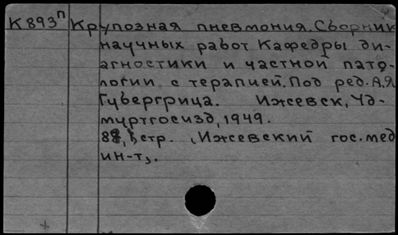 К893п Крупозная пневмония. Сборник
научных работ Кафедры ди-
агностики и частной пато-
логии с терапией. Под ред. А.Я.
Губергрица. Ижевск, Уд-
муртгосизд, 1949.
стр. (Ижевский гос. мед
ин-т).